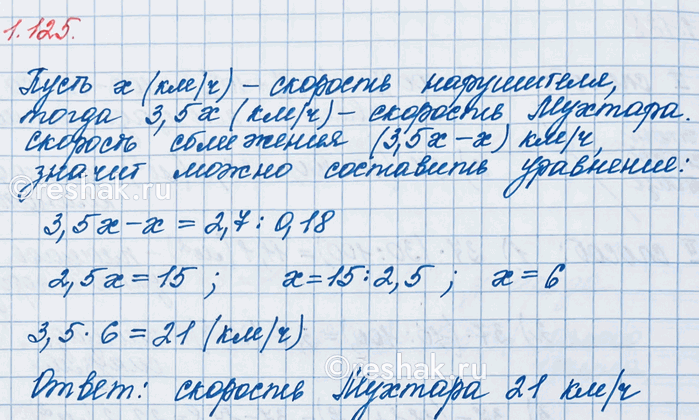 1.125.
Пусть x (км/ч) – скорость нарушителя,
тогда 3,5x (км/ч) – скорость Мухтара.
скорость сближения (3,5x – x) км/ч,
значит можно составить уравнение:
©reshak.ru
3,5x – x = 2,7 : 0,18
2,5x = 15 ; x = 15 : 2,5 ; x = 6
3,5 · 6 = 21 (км/ч)
©reshak.ru
Ответ: скорость Мухтара 21 км/ч